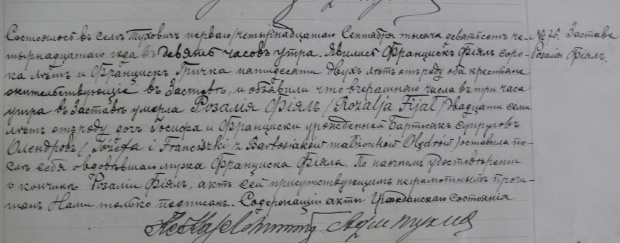 Состоялось въ селѣ Туховичъ перваго/четырнадцатаго Сентября тысяча девятсотъ че-
тырнадцатаго года въ девять часовъ утра. Явились Францискъ Фіялъ соро-
ка лѣтъ и Францискъ Гричка пятидесяти двухъ лѣтъ отъ роду оба крестьяне
жительствующіе въ Заставѣ, и объявили что вчерашняго числа въ три часа
утра въ Заставѣ умерла Розалія Фіялъ /Rozalja Fijał/ двадцати семи
лѣтъ отъ роду дочь Іосифа и Франциски урожденной Бартосякъ супруговъ
Олендровъ /Józefa i Franciszki z Bartosiaków małżonków Olędrów/ оставила по-
слѣ себя овдовѣвшаго мужа Франциска Фіяла. По настномъ удостовѣреніи
о кончинѣ Розаліи Фіялъ, актъ сей присутствующимъ неграмотнымъ прочи-
танъ Нами только подписанъ. Содержащій акты Гражданскаго Состоянія
№ 76. Заставе
Розалія Фіялъ.